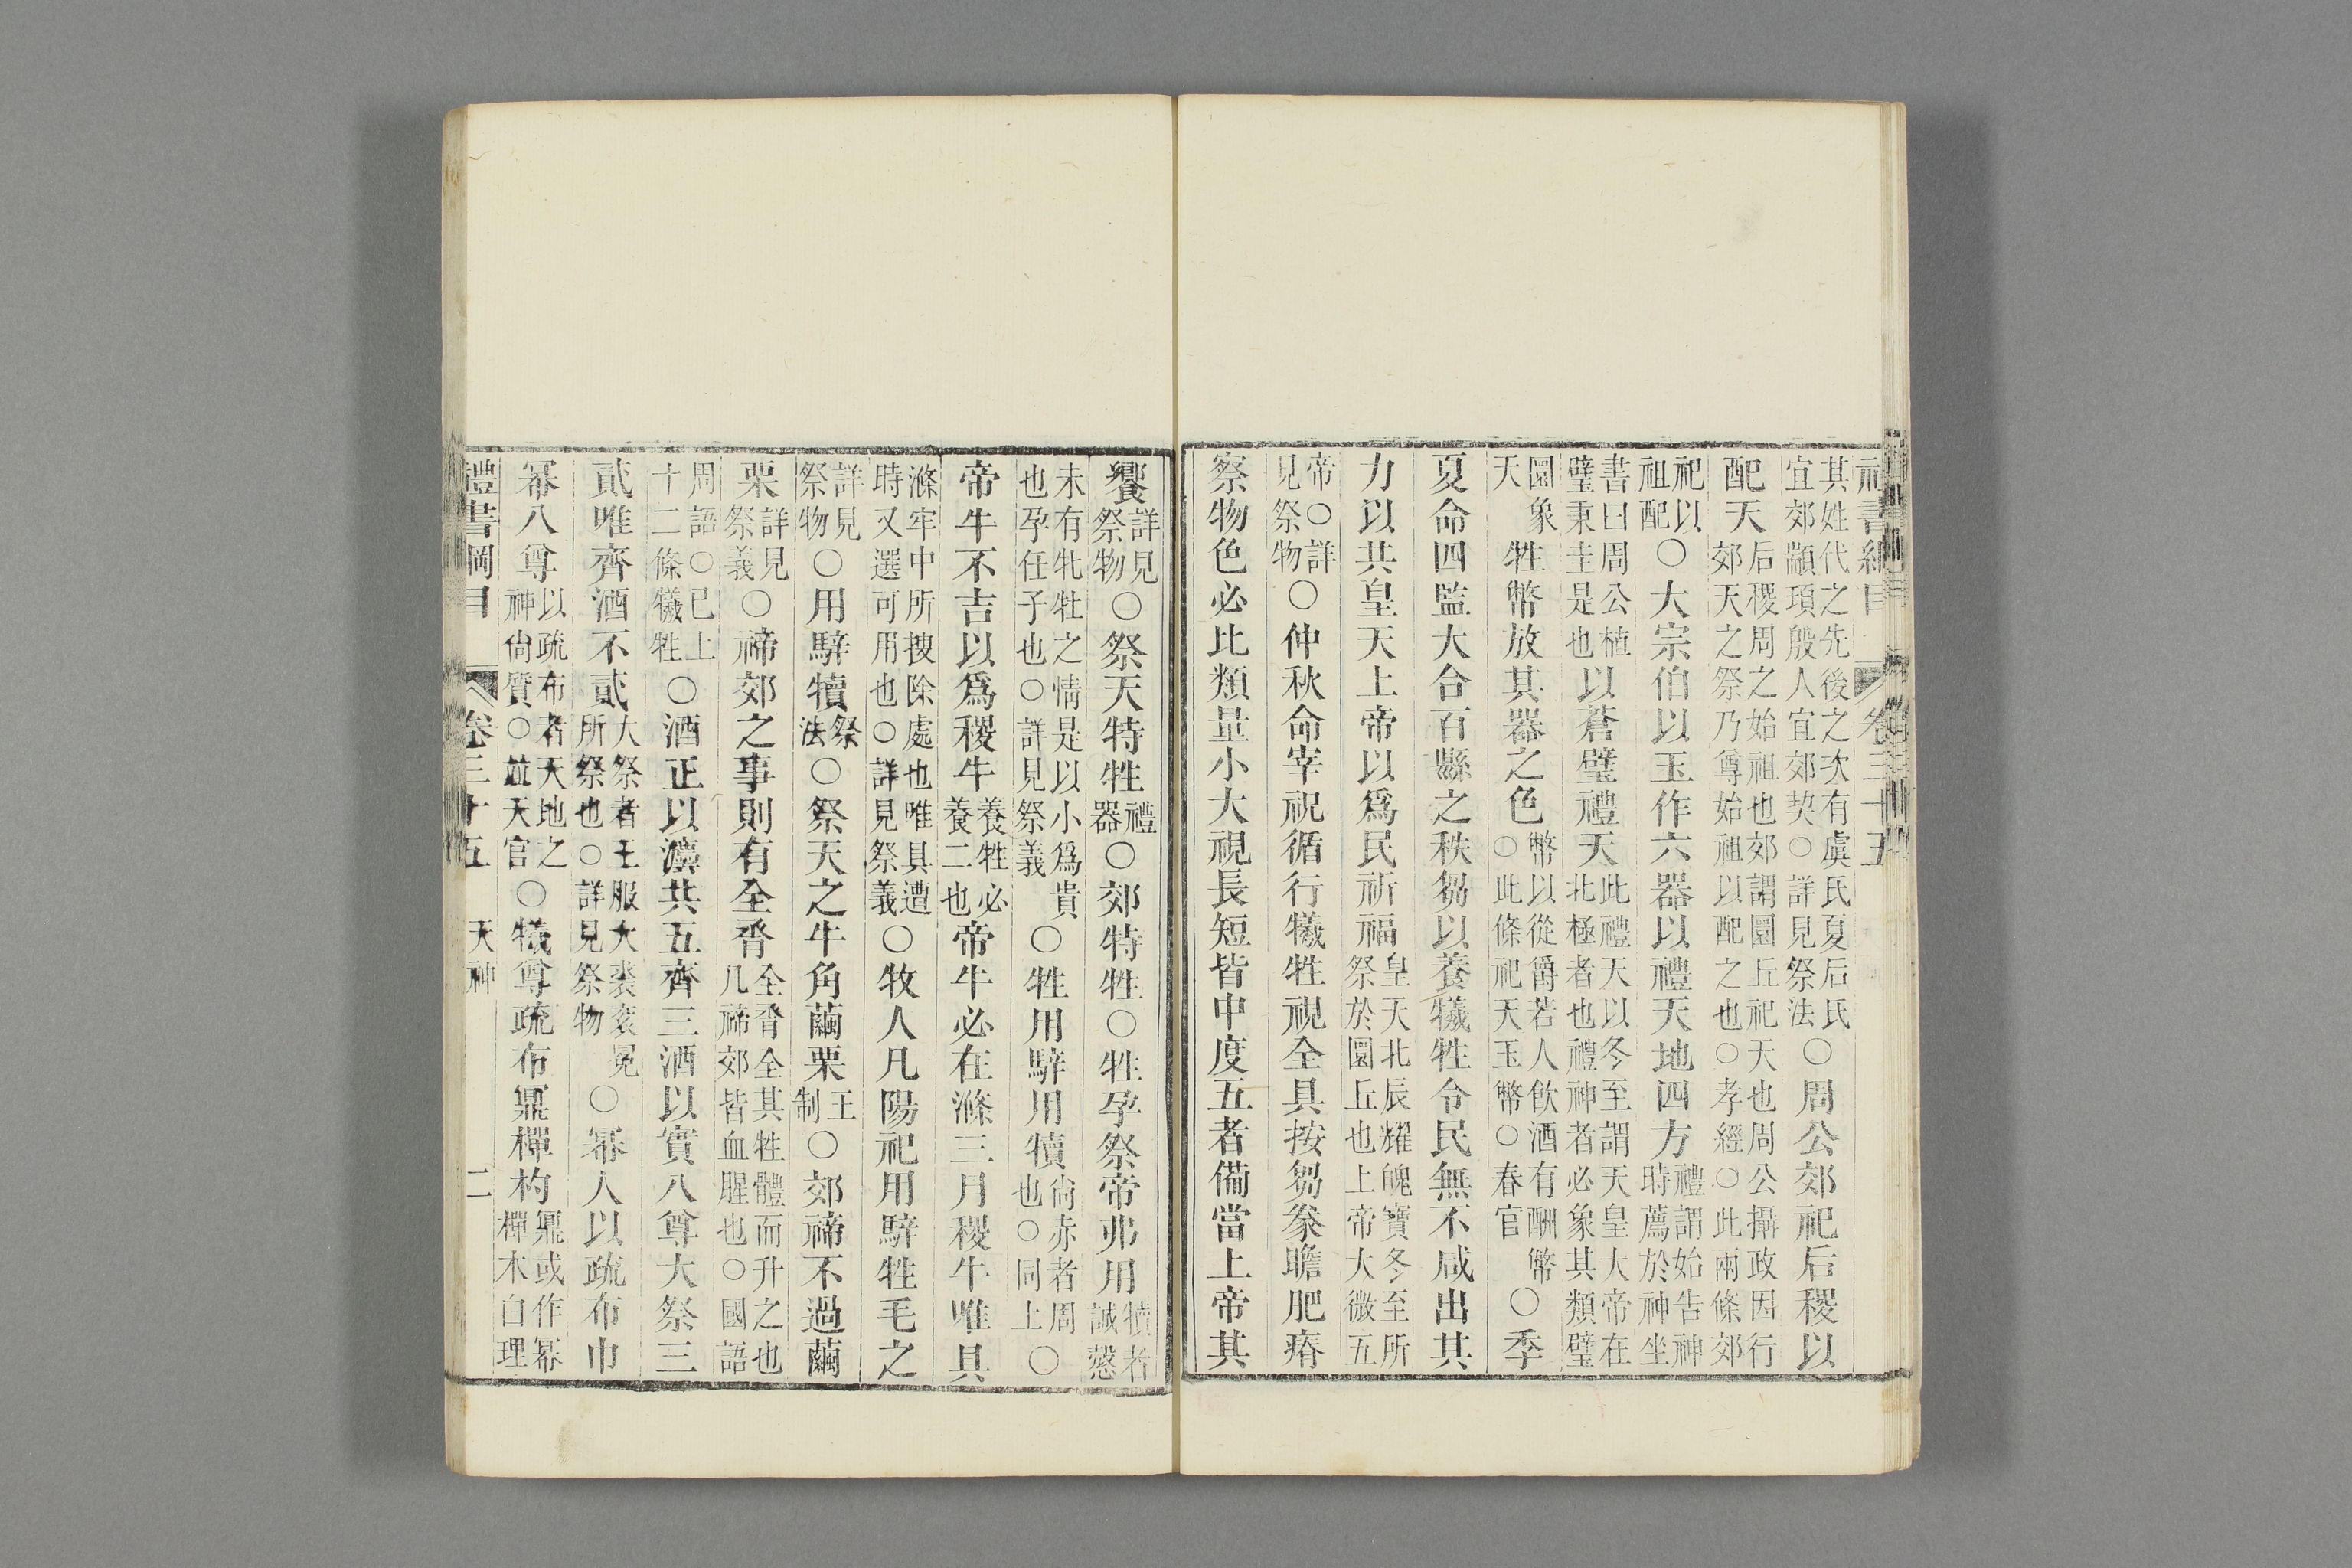 禮書綱目 卷三十五
其姓代之先後之次有虞氏夏后氏宜郊顓頊殷人宜郊契○詳見祭法○周公郊祀后稷以
配天后稷周之始祖也郊謂圜丘祀天也周公攝政因行郊天之祭乃尊始祖以配之也○孝經○此兩條郊
祀以祖配○大宗伯以玉作六器以禮天地四方禮謂始告神時薦於神坐
書曰周公植璧秉圭是也以蒼璧禮天此禮天以冬至謂天皇大帝在北極者也禮神者必象其類璧
圜象天牲幣放其器之色幣以從爵若人飲酒有酬幣○此條祀天玉幣○春官○季
夏命四監大合百縣之秩芻以養犧牲令民無不咸出其
力以共皇天上帝以爲民祈福皇天北辰耀魄寶冬至所祭於圜丘也上帝大微五
帝○詳見祭物○仲秋命宰祝循行犧牲視全具按芻豢瞻肥瘠
察物色必比類量小大視長短皆中度五者備當上帝其
饗詳見祭物○祭天特牲禮器○郊特牲○牲孕祭帝弗用犢者誠慤
未有牝牡之情是以小爲貴也孕任子也○詳見祭義○牲用騂用犢尚赤者周也○同上○
帝牛不吉以爲稷牛養牲必養二也帝牛必在滌三月稷牛唯具
滌牢中所搜除處也唯具遭時又選可用也○詳見祭義○牧人凡陽祀用騂牲毛之
詳見祭物○用騂犢祭法○祭天之牛角繭栗王制○郊禘不過繭
栗詳見祭義○禘郊之事則有全脀全脀全其牲體而升之也凡禘郊皆血腥也○國語
周語○已上十二條犧牲○酒正以灋共五齊三酒以實八尊大祭三
貳唯齊酒不貳大祭者王服大裘袞冕所祭也○詳見祭物○冪人以疏布巾
冪八尊以疏布者天地之神尚質○並天官○犧尊疏布鼏樿杓鼏或作冪樿木白理
禮書綱目 卷三十五 天神 二